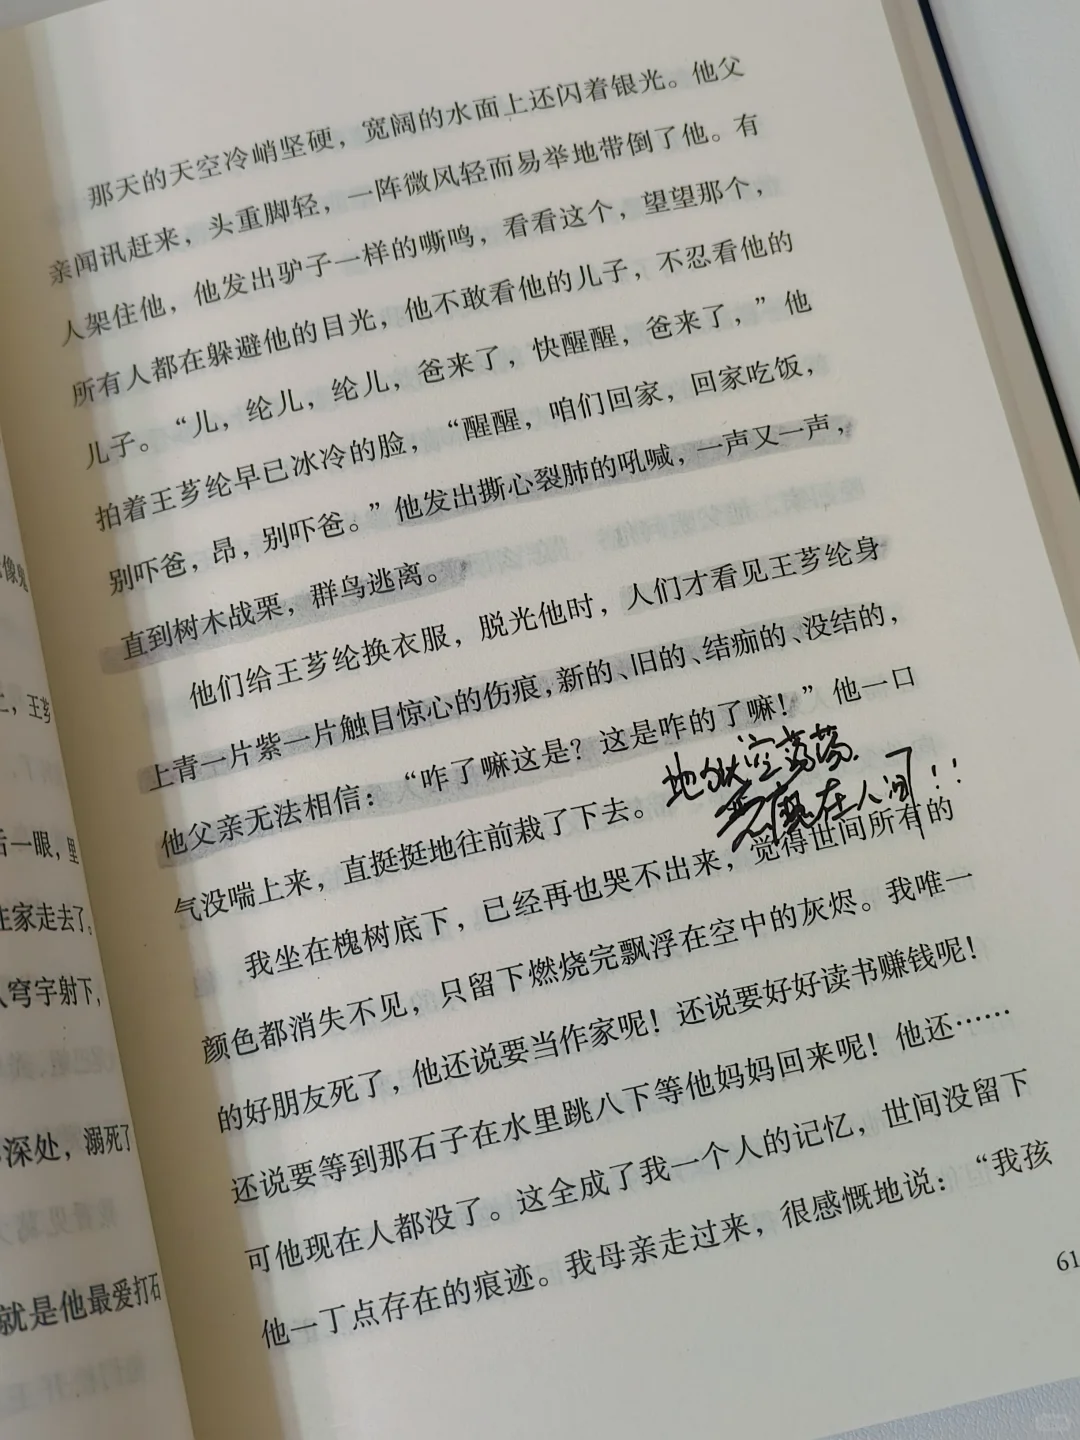 像鬼
王芗
后一眼，里
往家走去了，
穹宇射下，
深处，溺死了
就是他最爱打石
那天的天空冷峭坚硬，宽阔的水面上还闪着银光。他父
亲闻讯赶来，头重脚轻，一阵微风轻而易举地带倒了他。有
人架住他，他发出驴子一样的嘶鸣，看看这个，望望那个，
所有人都在躲避他的目光，他不敢看他的儿子，不忍看他的
儿子。“儿，纶儿，纶儿，爸来了，快醒醒，爸来了，”他
拍着王芗纶早已冰冷的脸，“醒醒，咱们回家，回家吃饭，
别吓爸，昂，别吓爸。”他发出撕心裂肺的吼喊，一声又一声，
直到树木战栗，群鸟逃离。
他们给王芗纶换衣服，脱光他时，人们才看见王芗纶身
上青一片紫一片触目惊心的伤痕，新的、旧的、结痂的、没结的，
他父亲无法相信：“咋了嘛这是？这是咋的了嘛！”他一口
气没喘上来，直挺挺地往前栽了下去。
地狱空荡荡，
恶魔在人间！！
我坐在槐树底下，已经再也哭不出来，觉得世间所有的
颜色都消失不见，只留下燃烧完飘浮在空中的灰烬。我唯一
的好朋友死了，他还说要当作家呢！还说要好好读书赚钱呢！
还说要等到那石子在水里跳八下等他妈妈回来呢！他还……
可他现在人都没了。这全成了我一个人的记忆，世间没留下
他一丁点存在的痕迹。我母亲走过来，很感慨地说：“我孩
61